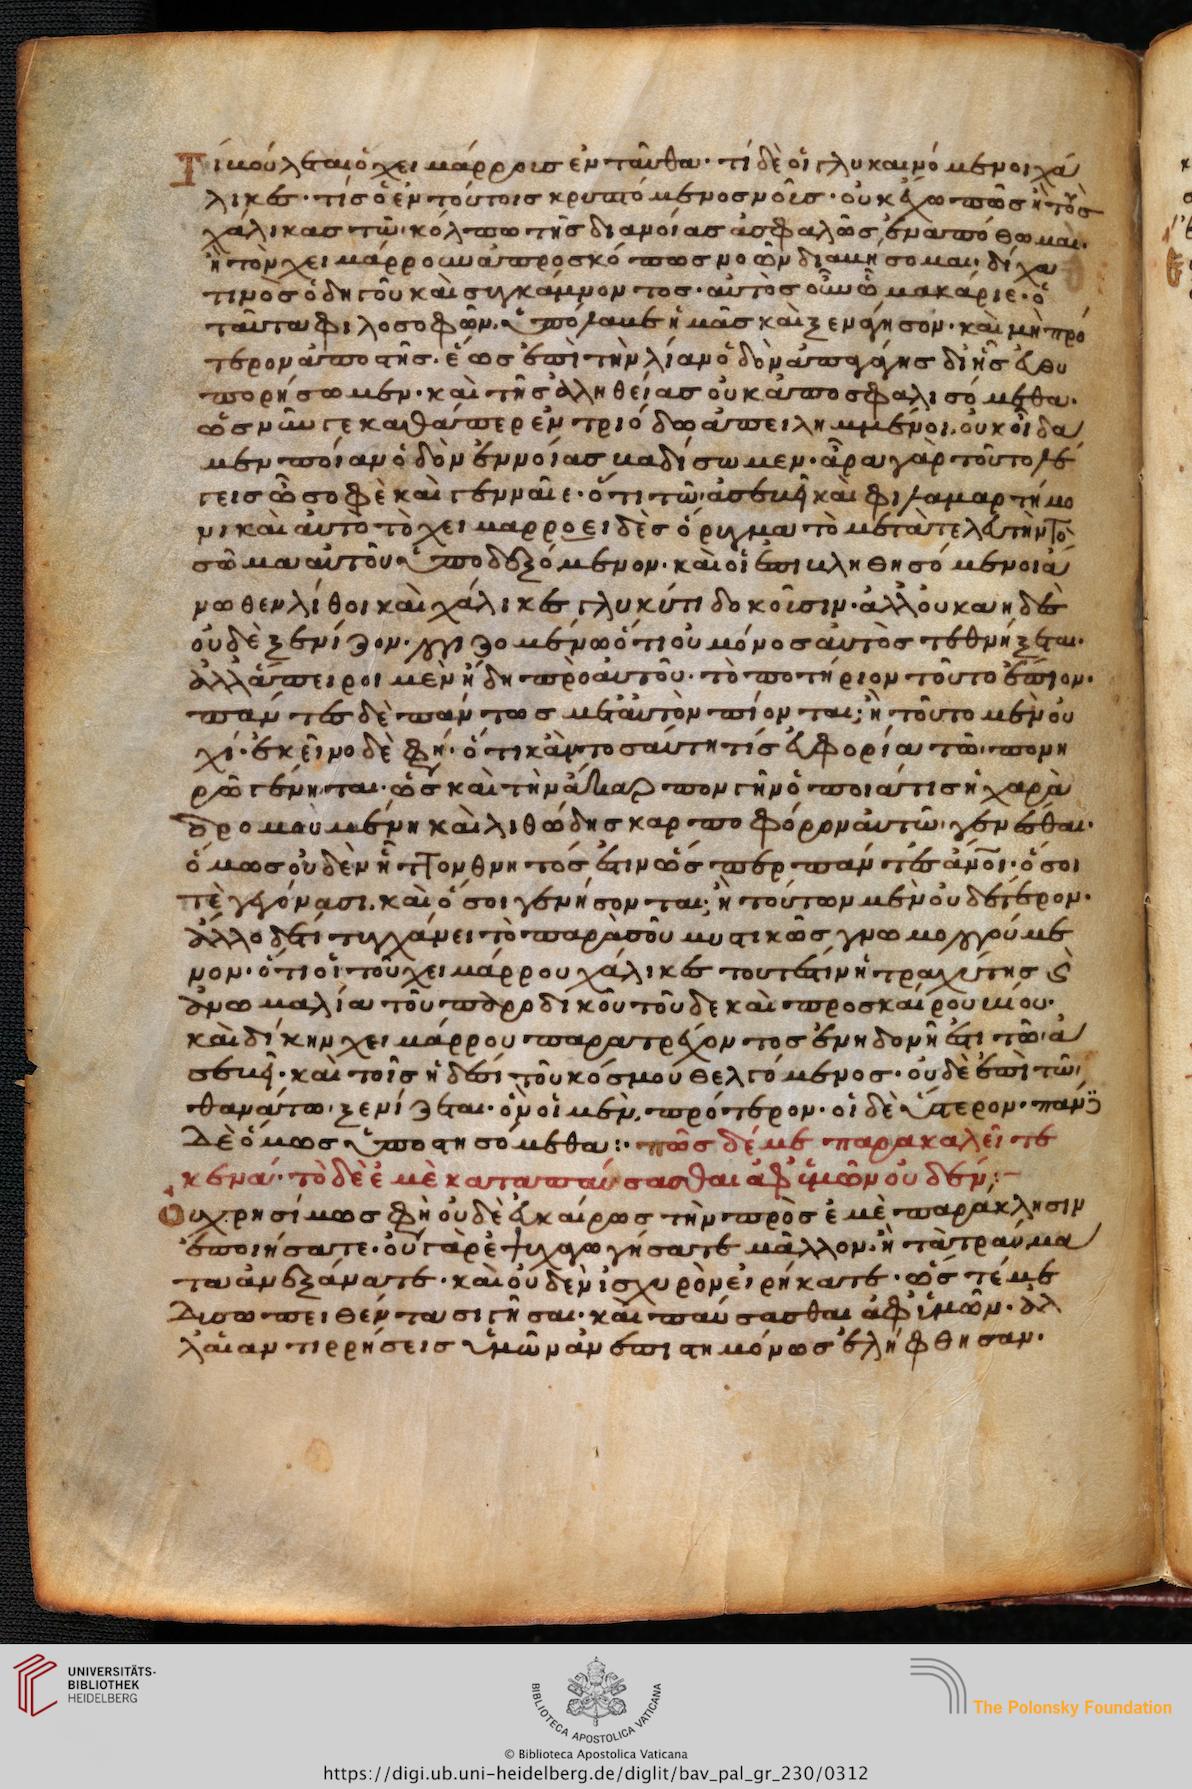 Τί μούλεται ὁ χειμάρρους ἐνταῦθα· τί δὲ οἱ γλυκαινόμενοι χά
λικες· τίς ὁ ἐν τούτοις κρυπτόμενος νοῦς· οὐκ ἔχω πῶς ἢ τοὺς
χάλικας τῷ κόλπω τῆς διανοίας ἀσφαλῶς ἐναπόθωμαι·
ἢ τὸν χειμάρρουν ἀπροσκόπως νοῶν διανήσομαι· δίχα
τινὸς ὁδηγοῦ καὶ συγκάμνοντος· αὐτὸς οὖν ὦ μακάριε· ὁ
ταῦτα φιλοσοφῶν· ὑπόλαβε ἡμᾶς καὶ ξενάγησον· καὶ μὴ πρό
τερον ἀποστῇς· ἕως ἐπὶ τὴν λείαν ὁδὸν ἀπαγάγῃς δι' ἧς εὐθυ
πορήσωμεν· καὶ τῆς ἀληθείας οὐκ ἀποσφαλισόμεθα·
ὡς νῦν γε καθάπερ ἐν τριόδω ἀπειλημμένοι· οὐκ οἶδα
μεν ποίαν ὁδὸν ἐννοίας βαδίσωμεν· ἆρα γὰρ τοῦτο λέ
γεις ὦ σοφὲ καὶ γενναῖε· ὅτι τῷ ἀσεβεῖ καὶ φιλαμαρτήμο
νι καὶ αὐτὸ τὸ χειμαρροειδὲς ὄρυγμα τὸ μετὰ τελευτὴν τὸ
σῶμα αὐτοῦ ὑποδεξόμενον· καὶ οἱ ἐπικληθησόμενοι ἄ
νωθεν λίθοι καὶ χάλικες γλυκύτι δοκοῦσιν· ἀλλ' οὐκ ἀηδὲς
οὐδὲ ξενίζον· λογιζομένω ὅτι οὐ μόνος αὐτὸς τεθνήξεται·
ἀλλ' ἄπειροι μὲν ἤδη πρὸ αὐτοῦ· τὸ ποτήριον τοῦτο ἔπιον·
πάντες δὲ πάντως μετ' αὐτὸν πίονται· ἢ τοῦτο μὲν οὐ
χί· ἐκεῖνο δὲ φή· ὅτι κἂν τοσαύτη τίς εὐφορία τῶ πονη
ρῶ γένηται· ὡς καὶ τὴν ἄκαρπον γῆν ὁποιάτις ἡ χαρὰ
δρουμένη καὶ λιθώδης καρποφόρον αὐτῷ γενέσθαι·
ὅμως οὐδὲν ἧττον θνητός ἐστιν ὥσπερ πάντες ἄνοι· ὅσοι
τὲ γεγόνασι· καὶ ὅσοι γενήσονται· ἢ τούτων μὲν οὐδέτερον·
ἄλλο δέ τι τυγχάνει τὸ παρὰ σοῦ μυστικῶς γνωμολογούμε
νον· ὅτι οἱ τοῦ χειμάρρου χάλικες τουτέστιν ἡ τραχύτης καὶ
ἀνωμαλία τοῦ παροδικοῦ τοῦδε καὶ προσκαίρου βίου·
καὶ δίκην χειμάρρου παρατρέχοντος ἐν ἡδονῇ ἐστι τῶ ἀ
σεβεῖ· καὶ τοῖς ἡδέσι τοῦ κόσμου θελγόμενος· οὐδὲ ἐπὶ τῶ
θανάτω ξενίζεται· ὃν οἱ μὲν πρότερον· οἱ δὲ ὕστερον· πάντες
δὲ ὅμως ὑποστησόμεθα :· πῶς δέ με παρακαλεῖτε
κενά· τὸ δὲ ἐμὲ καταπαύσασθαι ἀφ' ὑμῶν οὐδέν:
Οὐ χρησίμως φὴ οὐδὲ εὐκαίρως τὴν πρὸς ἐμὲ παράκλησιν
ἐποιήσατε· οὐ γὰρ ἐψυχαγωγήσατε μᾶλλον· ἢ τὰ τραύμα
τα ἀνεξάνατε· καὶ οὐδὲν ἰσχυρὸν εἰρήκατε· ὥς τέ με
δυσωπειθέντα σιγῆσαι· καὶ παύσασθαι ἀφ' ὑμῶν· ἀλ
λ' αἱ ἀντιρρήσεις ὑμῶν ἀνεπιστημόνως ἐλήφθησαν·
UNIVERSITÄTS-
BIBLIOTHEK
HEIDELBERG
BIBLIOTECA APOSTOLICA VATICANA
The Polonsky Foundation
© Biblioteca Apostolica Vaticana
https://digi.ub.uni-heidelberg.de/diglit/bav_pal_gr_230/0312